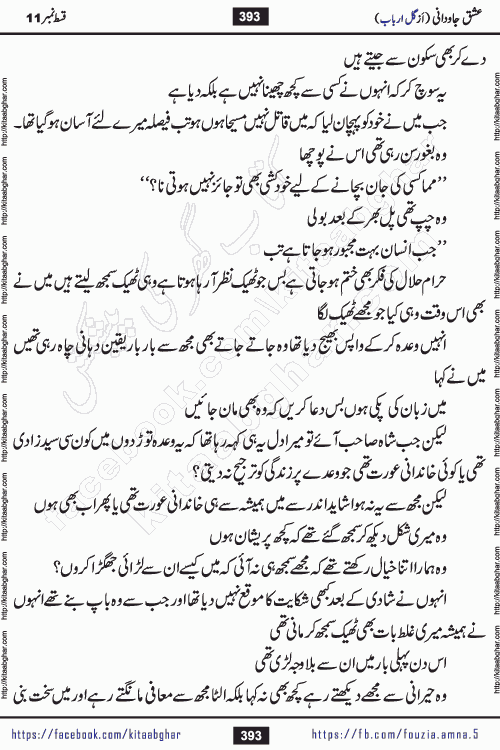 عشق جاودانی (از گل ارباب) 393 قسط نمبر 11
دے کر بھی سکون سے جیتے ہیں
یہ سوچ کر کہ انہوں نے کسی سے کچھ چھینا نہیں ہے بلکہ دیا ہے
جب میں نے خود کو پہچان لیا کہ میں قاتل نہیں مسیحا ہوں ہو تب فیصلہ میرے لئے آسان ہو گیا تھا۔
وہ بغور سن رہی تھی اس نے پوچھا
”مما کسی کی جان بچانے کے لیے خودکشی بھی تو جائز نہیں ہوتی نا؟“
وہ چپ تھی پل بھر کے بعد بولی
”جب انسان بہت مجبور ہو جاتا ہے تب
حرام حلال کی فکر بھی ختم ہو جاتی ہے بس جو ٹھیک نظر آ رہا ہوتا ہے وہی ٹھیک سمجھ لیتے ہیں میں نے
بھی اس وقت وہی کیا جو مجھے ٹھیک لگا
انہیں وعدہ کر کے واپس بھیج دیا تھا وہ جاتے جاتے بھی مجھ سے بار بار یقین دہانی چاہ رہی تھیں
میں نے کہا
میں زبان کی پکی ہوں بس دعا کریں کہ وہ بھی مان جائیں
لیکن جب شاہ صاحب آئے تو میرا دل یہ ہی کہہ رہا تھا کہ یہ وعدہ توڑ دوں میں کون سی سید زادی
تھی یا کوئی خاندانی عورت تھی جو وعدے پر زندگی کو ترجیح نہ دیتی؟
لیکن مجھ سے یہ نہ ہوا شاید اندر سے میں ہمیشہ سے ہی خاندانی عورت تھی یا پھر اب بھی ہوں
وہ میری شکل دیکھ کر سمجھ گئے تھے کہ کچھ پریشان ہوں
وہ ہمارا اتنا خیال رکھتے تھے کہ مجھے سمجھ ہی نہ آئی کہ میں کیسے ان سے لڑائی جھگڑا کروں؟
انہوں نے شادی کے بعد کبھی شکایت کا موقع نہیں دیا تھا اور جب سے وہ باپ بنے تھے انہوں
نے ہمیشہ میری غلط بات بھی ٹھیک سمجھ کر مانی تھی
اس دن پہلی بار میں ان سے بلا وجہ لڑی تھی
وہ حیرانی سے مجھے دیکھتے رہے کچھ بھی نہ کہا بلکہ الٹا مجھ سے معافی مانگتے رہے اور میں سخت بنی
https://facebook.com/kitaabghar 393 https://fb.com/fouzia.amna.5
http://kitaabghar.com
کتاب گھر کی پیشکش
facebook.com/kitaabghar
kitaabghar.com